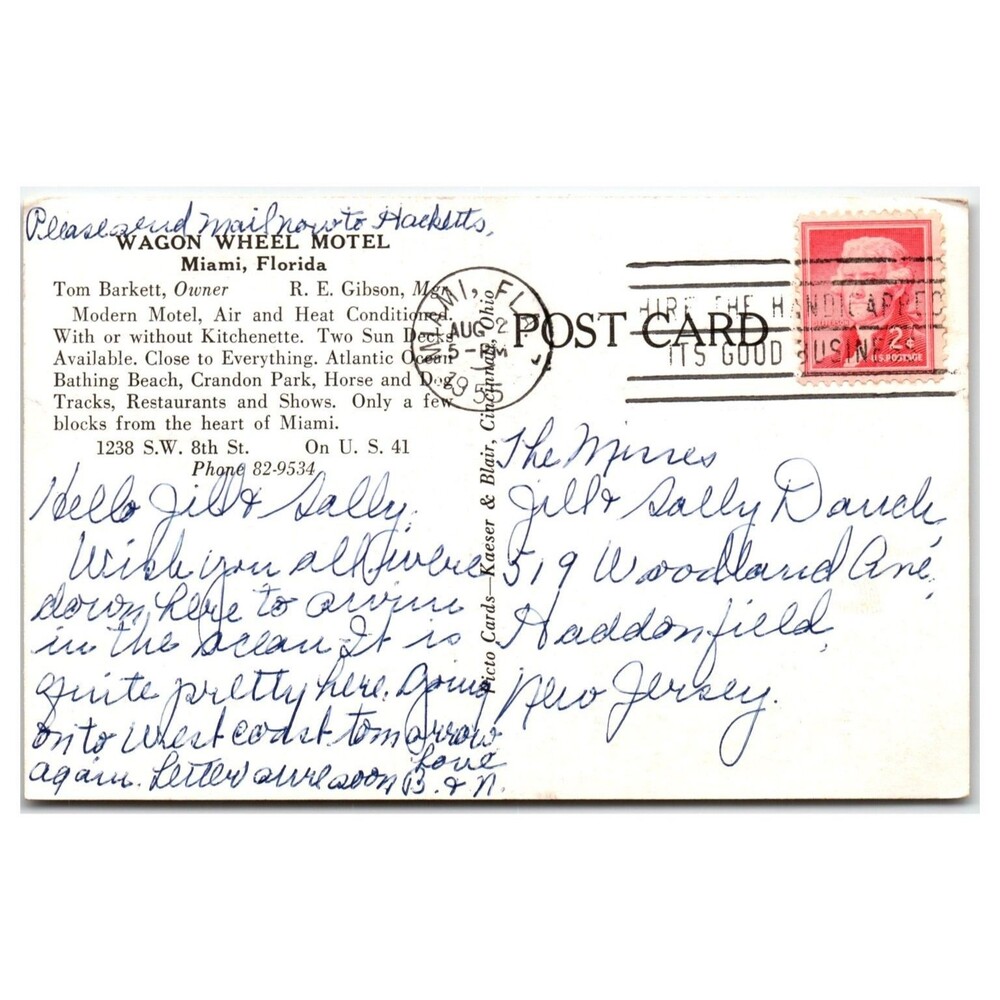 Please send Mail now to Hacketts,
WAGON WHEEL MOTEL
Miami, Florida
Tom Barkett, Owner R. E. Gibson, Mgr.
Modern Motel, Air and Heat Conditioned.
With or without Kitchenette. Two Sun Decks
Available. Close to Everything. Atlantic Ocean
Bathing Beach, Crandon Park, Horse and Dog
Tracks, Restaurants and Shows. Only a few
blocks from the heart of Miami.
1238 S.W. 8th St. On U. S. 41
Phone 82-9534
Hello Jill & Sally,
Wish you all were
down here to swim
in the ocean It is
quite pretty here. Going
onto West coast tomorrow
again. Letter soon
Love
B. & N.
Picto Cards—Kaeser & Blair, Cincinnati, Ohio
POST CARD
MIAMI, FLA
AUG 2
5-PM
1955
HIRE THE HANDICAPPED
ITS GOOD BUSINESS
2¢
U.S. POSTAGE
The Misses
Jill & Sally Dauch,
519 Woodland Ave,
Haddonfield,
New Jersey.